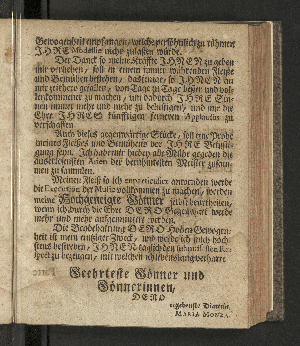 Gewogenheit empfangen, welche zu rühmen
JHRE Modestie nicht zulassen würde.
Der Danck so meine Kräffte JHNEN zu geben
mir verliehen, soll in einem immer währenden Fleiße
und Bemühen bestehen, dasjenige, so JHNEN an
mir zeithero gefallen, von Tage zu Tage besser und voll-
kommener zu machen, um dadurch JHRE Sin-
nen immer mehr und mehr zu belustigen, und mir die
Ehre JHRES künfftigen ferneren Applausus zu
verschaffen
Auch dieses gegenwärtige Stücke, soll eine Probe
meines Fleißes und Bemühens vor JHRE Belusti-
gung seyn. Ich habe mir alle Mühe gegeben die
auserlesensten Arien der berühmtesten Meister zusam-
men zu sammlen.
Meinen Fleiß so ich anwenden werde
die Execution der Music vollkommen zu machen, werden
meine Hochgeneigte Gönner selbst beurtheilen,
wenn ich durch die Ehre DERO Gegenwart werde
mehr und mehr aufgemuntert werden.
Die Beobachtung DERO Hohen Gewogen-
heit ist mein eintziger Zweck, und werde ich mich höch-
stens bestreben, JHNEN täglich den Re-
spect zu bezeugen, mit welchen ich lebenslang verharre
Geehrteste Gönner und
Gönnerinnen,
DERO
ergebenste Dienerin,
MARIA MONZA.